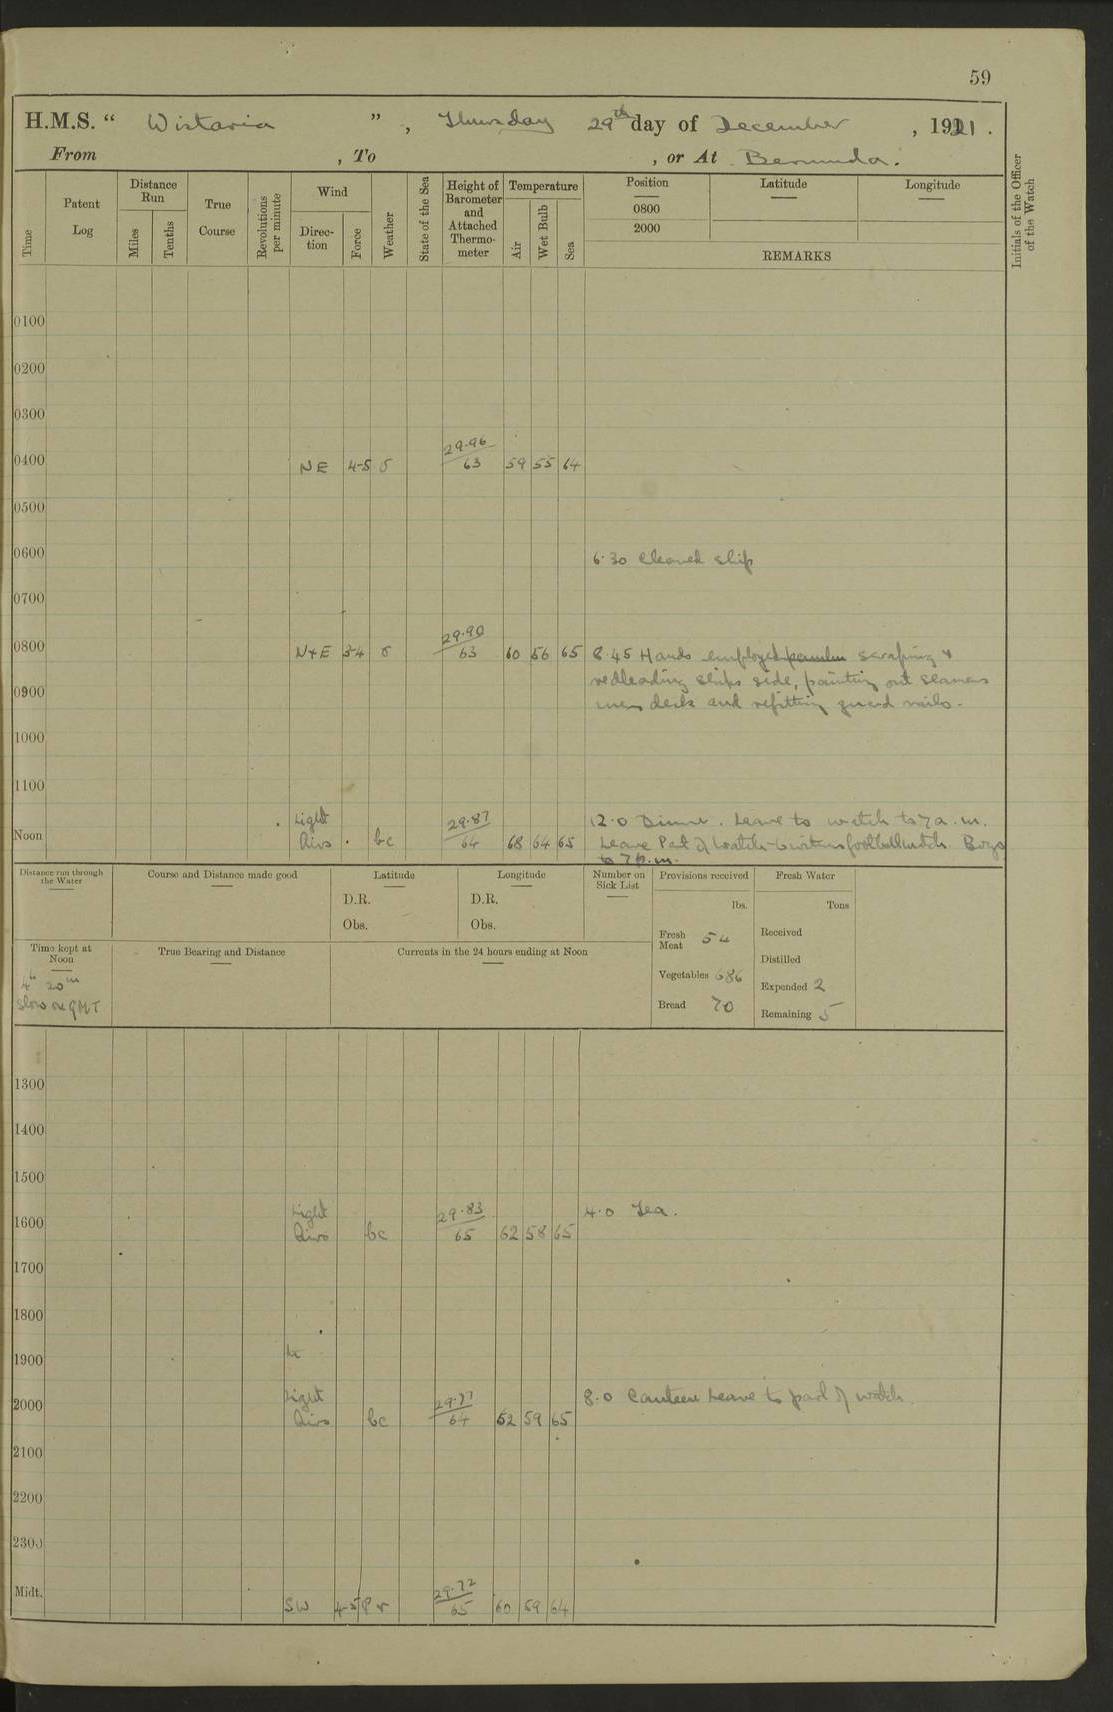 59
H.M.S. “ Wistaria ” , Thursday 29th day of December , 1921 .
From , To , or At Bermuda.
Time Patent Log Distance Run Miles Tenths True Course Revolutions per minute Wind Direction Force Weather State of the Sea Height of Barometer and Attached Thermometer Temperature Air Wet Bulb Sea Position 0800 2000 Latitude Longitude REMARKS Initials of the Officer of the Watch
0100
0200
0300
0400 NE 4-5 o 29.96/63 59 55 64
0500
0600 6.30 Cleaned ship
0700
0800 N+E 3-4 o 29.90/63 60 56 65 8.45 Hands employed scraping +
0900 redleading ships side, painting out seamens
mess deck and refitting guard rails.
1000
1100
Noon Light Airs bc 29.87/64 68 64 65 12.0 Dinner. Leave to watch to 7 a.m.
Leave Part of Watch to witness football match. Boys
to 7 p.m.
Distance run through the Water Course and Distance made good Latitude D.R. Obs. Longitude D.R. Obs. Number on Sick List Provisions received lbs. Fresh Water Tons
Time kept at Noon True Bearing and Distance Currents in the 24 hours ending at Noon
4h 20m
slow on GMT
Fresh Meat 54 Received
Distilled
Vegetables 686 Expended 2
Bread 70 Remaining 5
1300
1400
1500
1600 Light Airs bc 29.83/65 62 58 65 4.0 Tea.
1700
1800
1900
2000 Light Airs bc 29.77/64 62 59 65 8.0 Canteen Leave to part of watch.
2100
2200
2300
Midt. SW 4-5 29.72/65 60 59 64